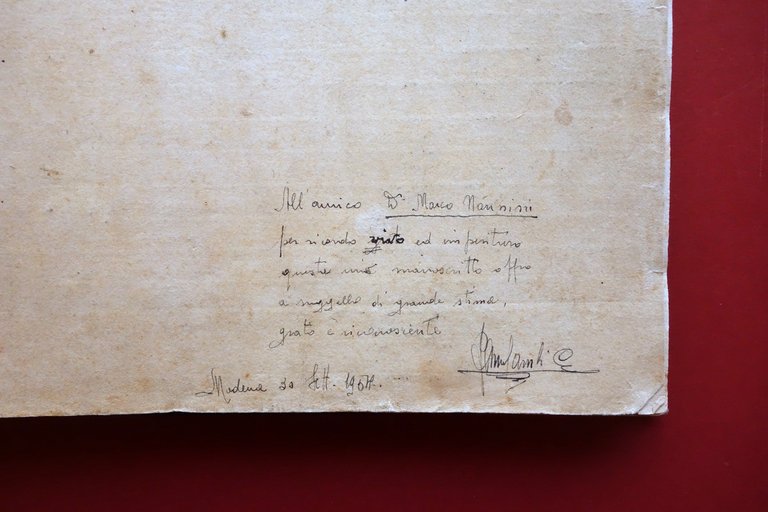 All'amico Dr Marco Nannini
per ricordo grato ed imperituro
questo mio manoscritto offro
a suggello di grande stima,
grato e riconoscente
Modena 20 Sett. 1954.